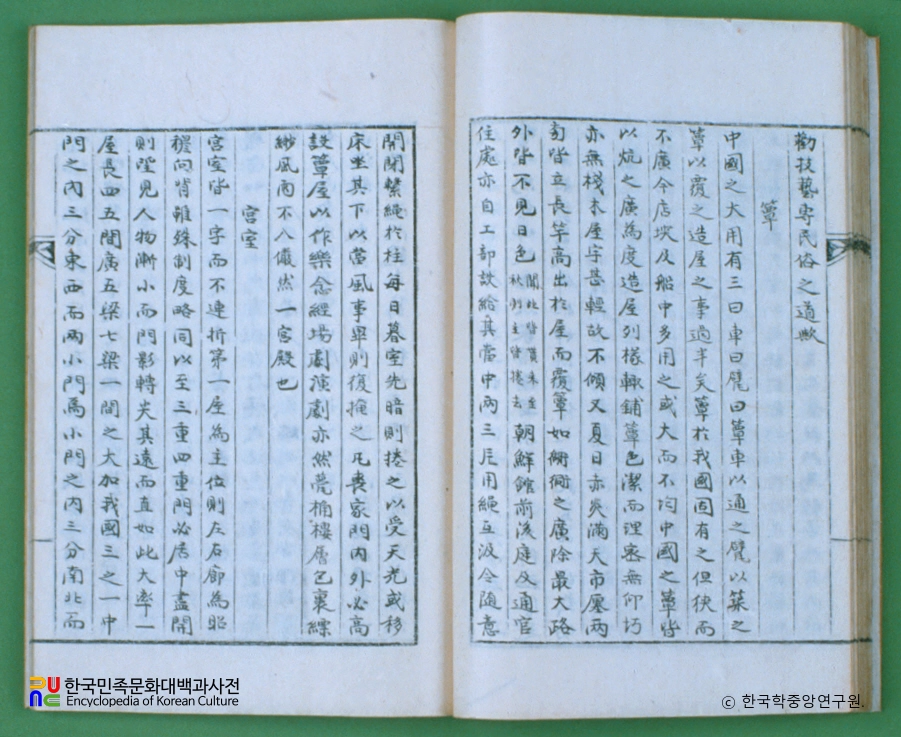 勸技藝專民俗之道歟
簟
中國之大用有三曰車曰甓曰簟車以通之甓以築之
簟以覆之造屋之事過半矣簟於我國固有之但狹而
不廣今店埃及船中多用之或大而不均中國之簟皆
以炕之廣為度造屋列樣輒鋪簟色潔而理密無仰圬
亦無棧木屋字甚輕故不傾又夏日亦炎滿天市廛兩
旁皆立長竿高出於屋而覆簟如衚衕之廣除最大路
外皆不見日色 朝鮮館前後庭及通官
住處亦自工部設給其當中兩三尺用繩互波令隨意
開閉繫繩於柱每日暮室先暗則捲之以受天光或移
床坐其下以當風事畢則復掩之凡喪家門內外必高
設簟屋以作樂念經場劇演劇亦然甍桷樓層包裹縹
緲風雨不入儼然一宮殿也
宮室
宮室皆一字而不連折第一屋為主位則左右廊為昭
穆向背雖殊制度略同以至三重四重門必居中盡開
則望見人物漸小而門影轉尖其遠而直如此大率一
屋長四五間廣五梁七梁一間之大加我國三之一中
門之內三分東西而兩小門焉小門之內三分南北而
한국민족문화대백과사전
Encyclopedia of Korean Culture
ⓒ 한국학중앙연구원.